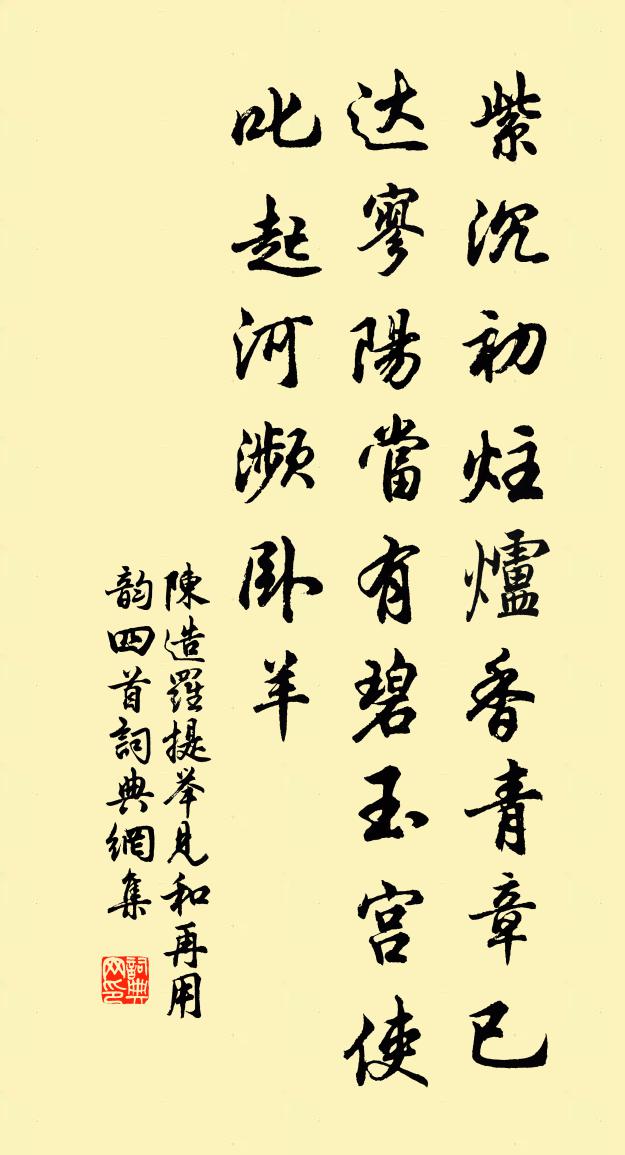 紫沉初炷爐香青章已
达寥陽當有碧玉宫使
叱起河濒卧羊
陳造羅提举見和再用
韵四首詞典網集
詞典网印